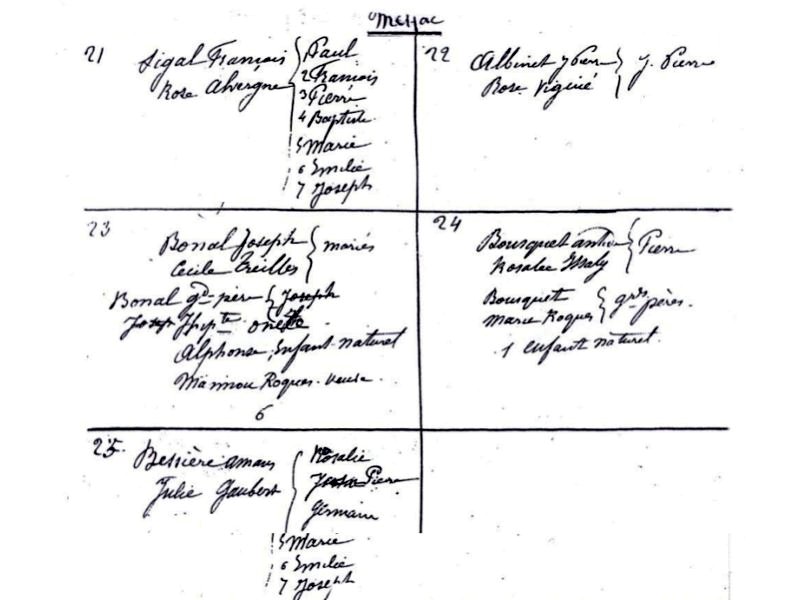 21 Sigal François { Paul
Rose Alvergne 2 François
3 Pierre
4 Baptiste
5 Marie
6 Emilie
7 Joseph
22 Albinet J Pierre } J. Pierre
Rose Viginé
23
Bonal Joseph { mariés
Cecile Treilles
Bonal gd père { Joseph
Joseph
Alphonse, Enfant naturel
Roques. veuve.
6
24
Bousquet { Pierre
Rosalie Maly
Bousquet { grds pères.
Marie Roques
1 enfant naturel.
25.
Bessière amans { Rosalie
Julie Gaubert Pierre
Germain
5 Marie
6 Emilie
7 Joseph